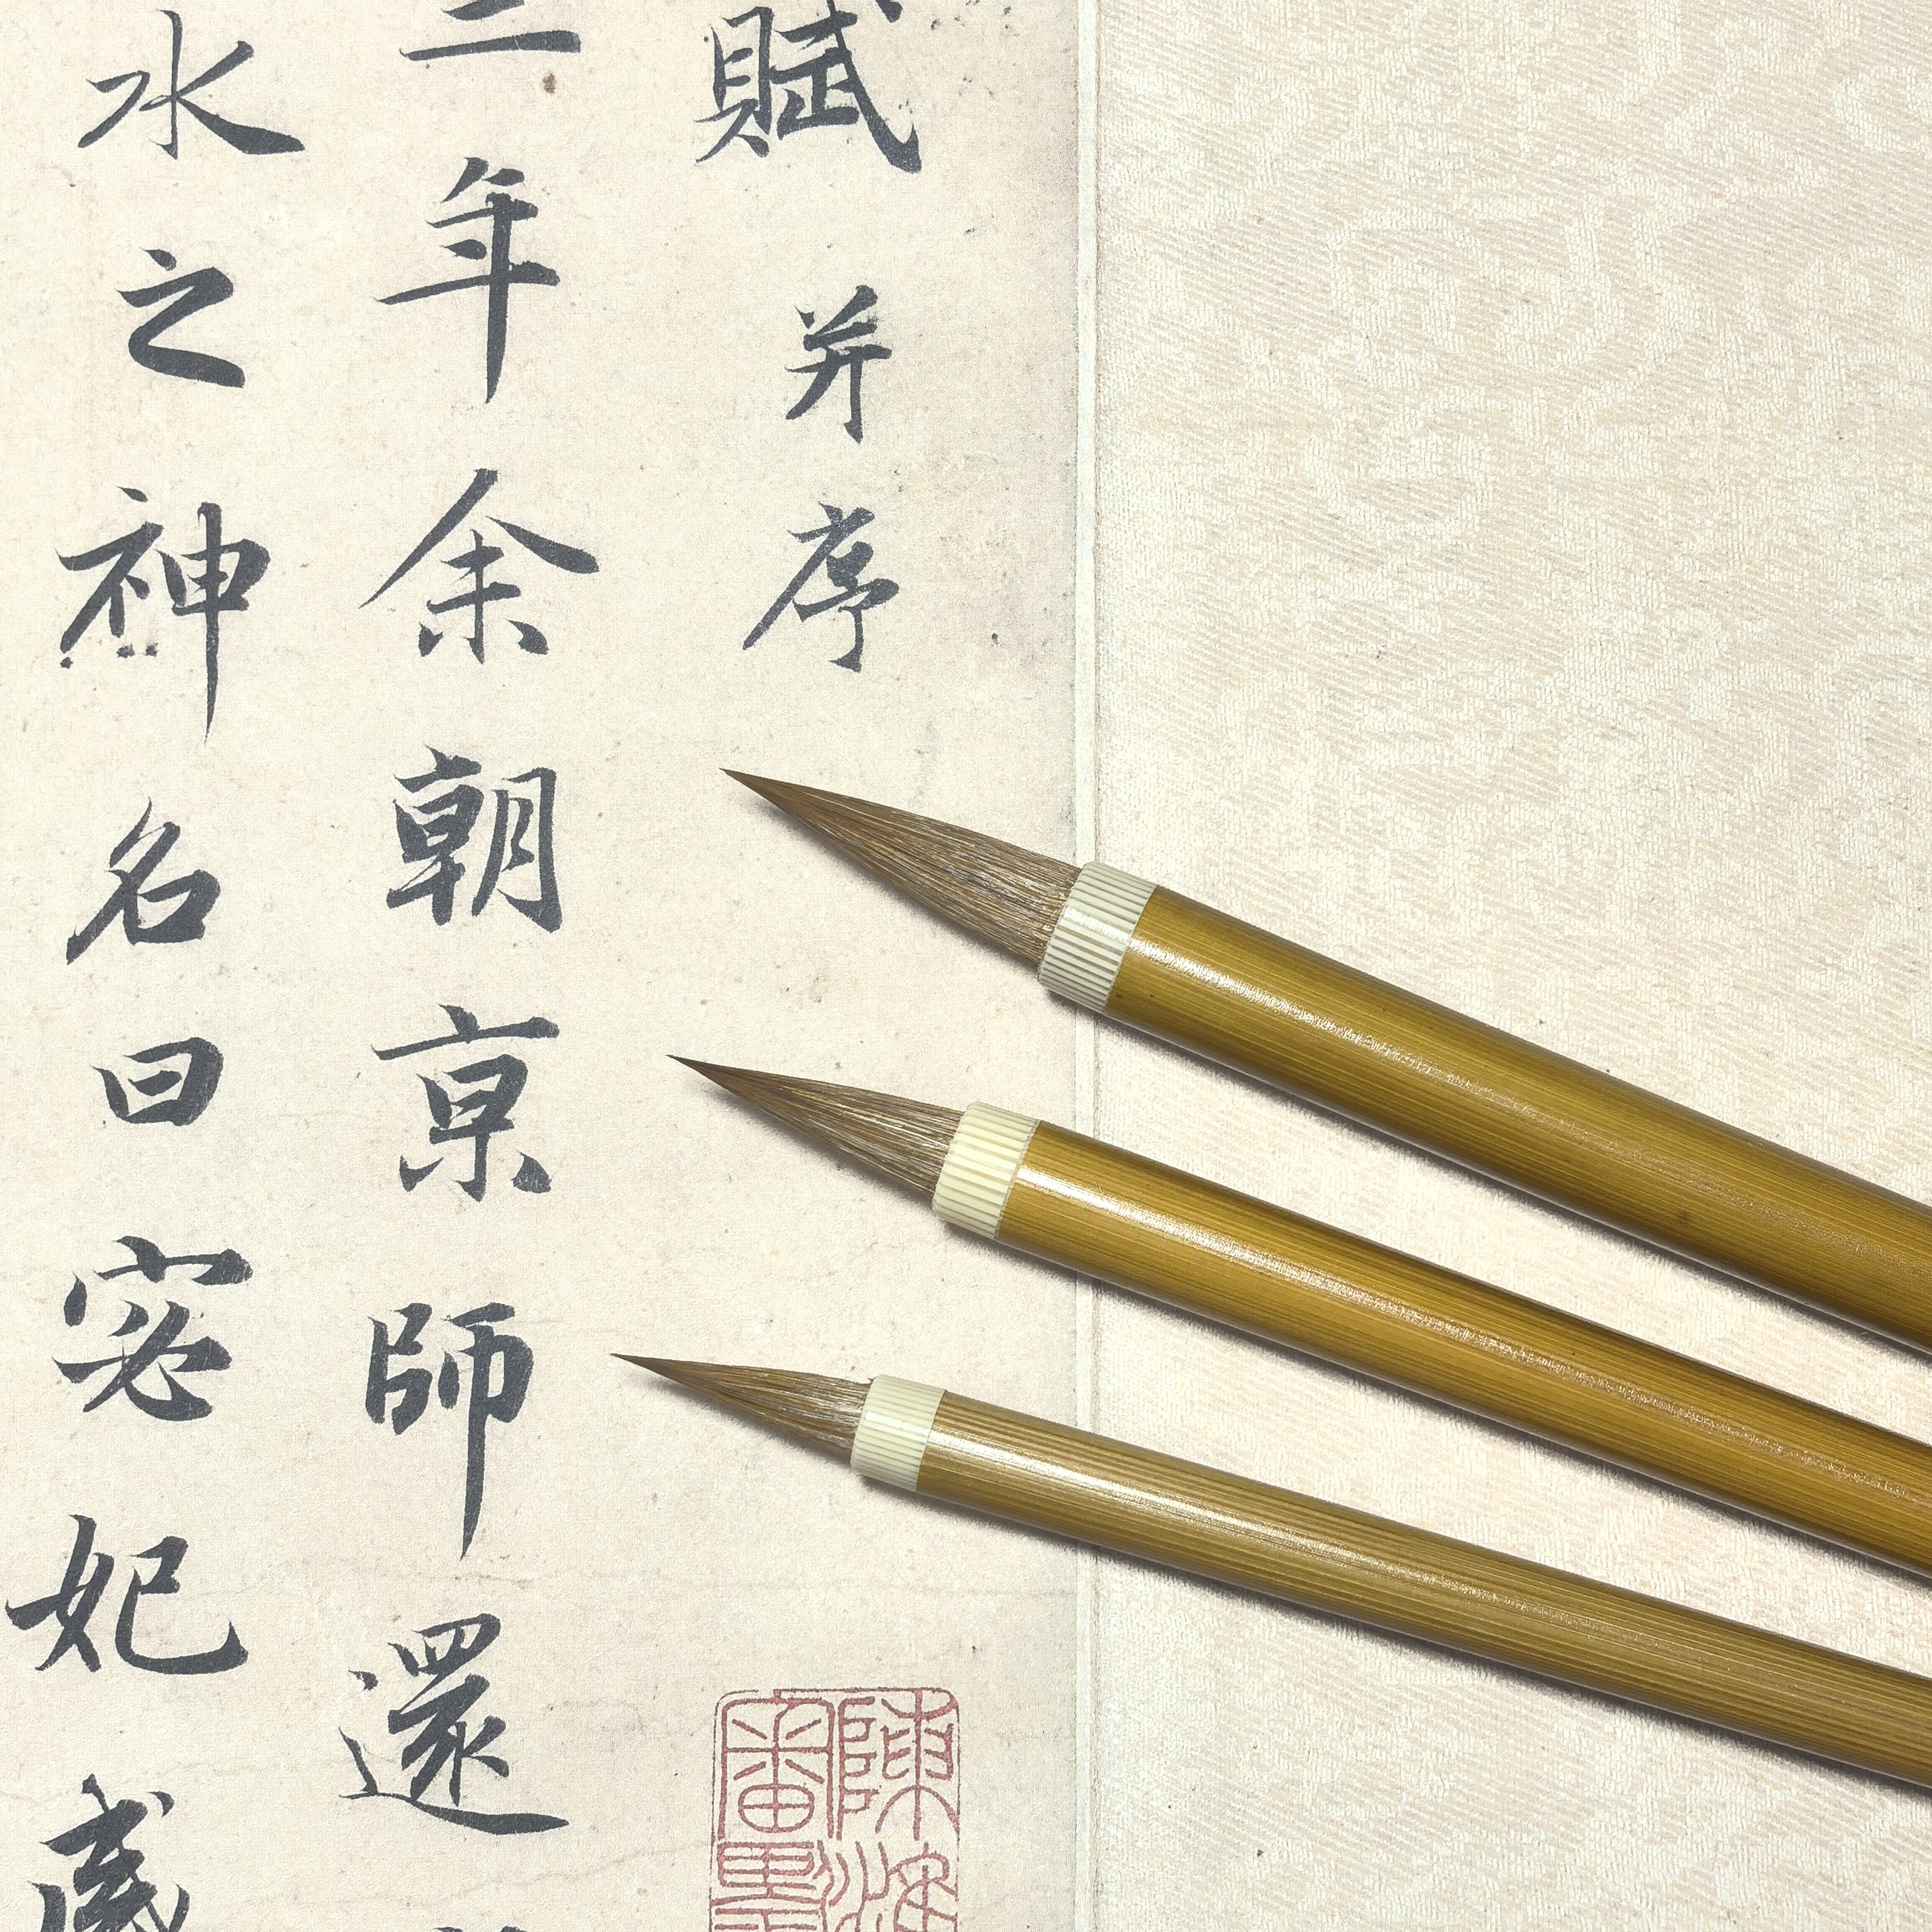 賦 并序
三年余朝京師還
水之神名曰宓妃感